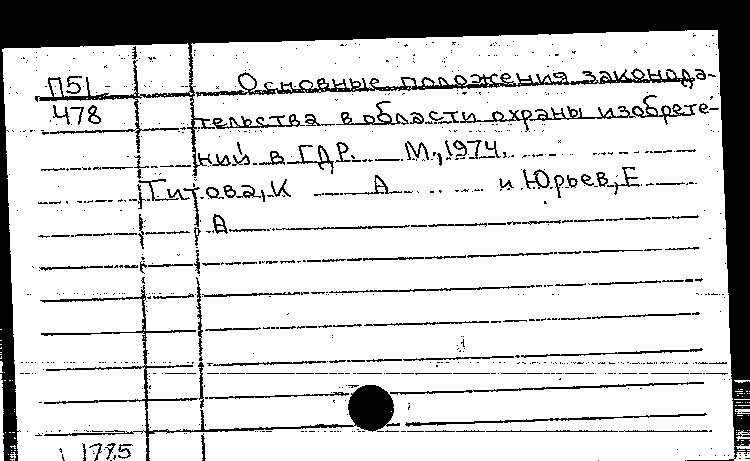 П51 Основные положения законода-
478 тельства в области охраны изобрете-
ний в ГДР. М., 1974.
Титова, К А и Юрьев, Е
А
1785